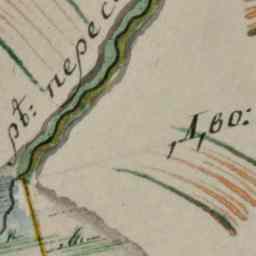 рѣ: пересо
Дво: